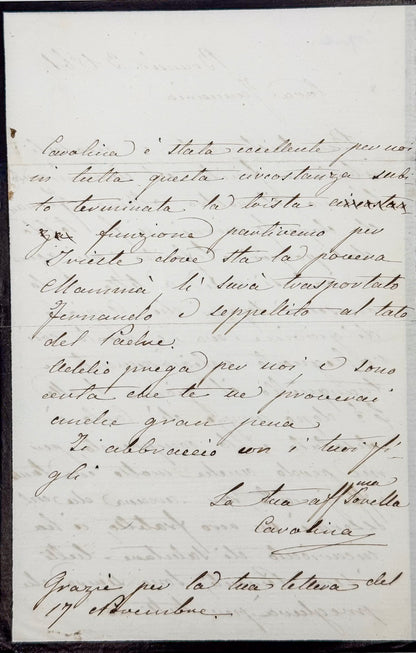 Carolina è stata eccellente per noi
in tutta questa circostanza sub-
to terminata la trista circostan
za funzione partiremo per
Trieste dove sta la povera
Mammà, lì sarà trasportato
Fernando e seppellito al lato
del Padre.
Addio prega per noi, e sono
certa che te ne proverai
anche gran pena
Ti abbraccio con i tuoi fi-
gli
La tua aff.ma Sorella
Carolina
Grazie per la tua lettera del
17 Novembre.